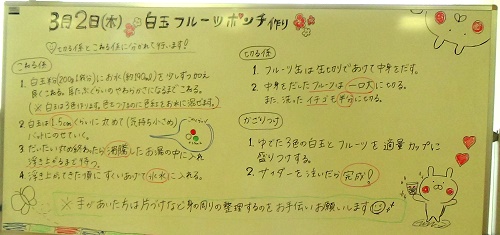 3月2日(木) 白玉フルーツポンチ作り
♡切る係とこねる係に分かれて行います!
こねる係
1. 白玉粉(200g1袋分)にお水(約190ml)を少しずつ加え
良くこねる。耳たぶくらいのやわらかさになるまでこねる。
(※白玉は3色作ります。色をつけるのに色玉をお水に混ぜます。)
2. 白玉は1.5cmくらいに丸めて(気持ち小さめ)
バットにのせていく。
3. だいたい丸め終わったら沸騰したお湯の中に入れ
浮き上がるまで待つ。
4. 浮き上がってきた順にすくいあげて氷水に入れる。
切る係
1. フルーツ缶は缶切りであけて中身をだす。
2. 中身をだしたフルーツは一口大に切る。
また、洗ったイチゴも半分に切る。
かざりつけ
1. ゆでた3色の白玉とフルーツを適量カップに
盛りつける。
2. サイダーを注いだら完成!
※手があいた方は片づけなど身の周りの整理するのをお手伝いお願いします